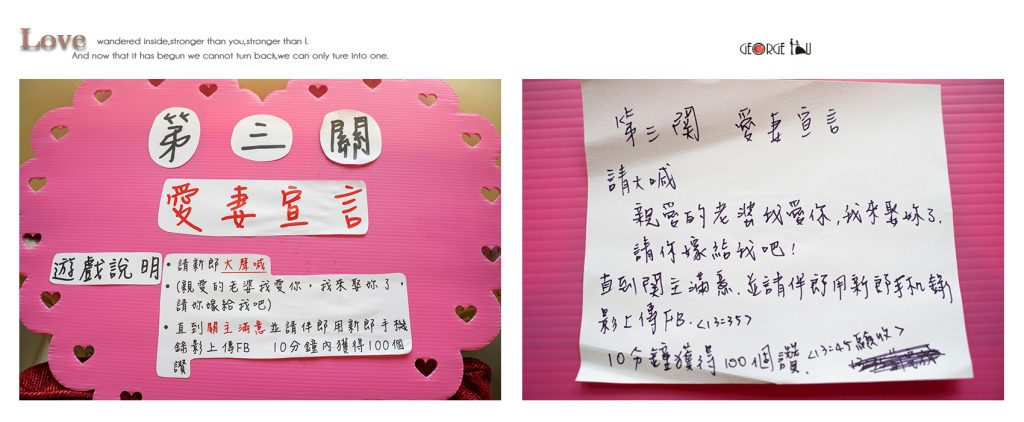 Love wandered inside,stronger than you,stronger than I.
And now that it has begun we cannot turn back,we can only ture into one.
GEORGE
第三關
愛妻宣言
遊戲說明
• 請新郎大聲喊
• (親愛的老婆我愛你，我來娶妳了，
請妳嫁給我吧)
• 直到關主滿意並請伴郎用新郎手機
錄影上傳FB 10分鐘內獲得100個
讚
第三関 愛妻宣言
請大喊
親愛的老婆我愛你,我來娶妳了.
請你嫁給我吧!
直到関主滿意.並請伴郎用新郎手机錄
影上傳FB.<13:35>
10分鐘獲得100個讚.<13:45驗收>